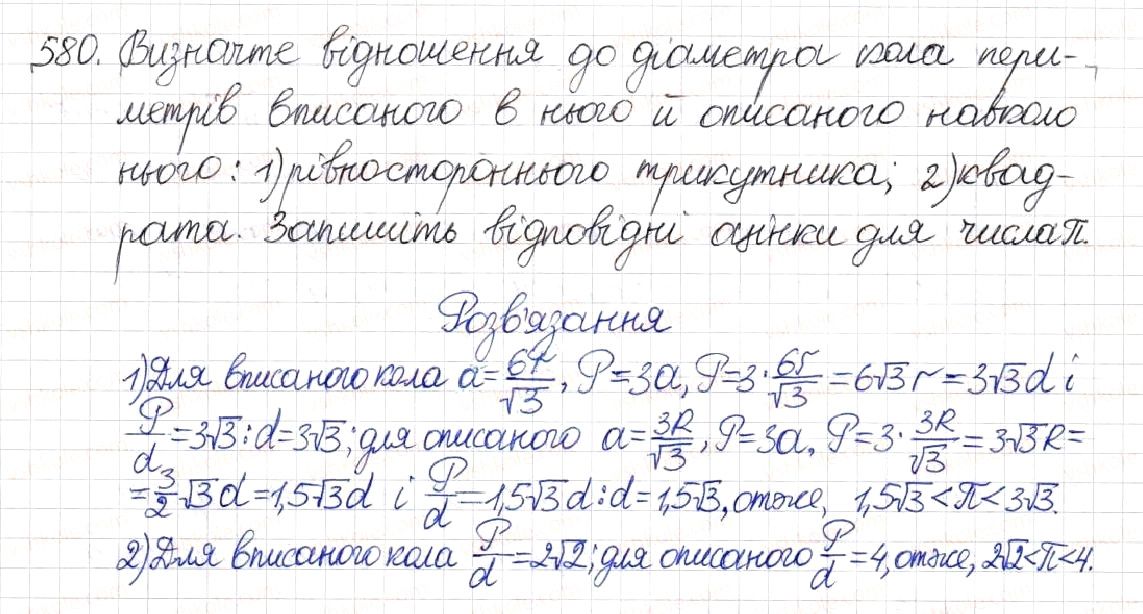 580. Визначте відношення до діаметра кола пери-
метрів вписаного в нього й описаного навколо
нього: 1) рівностороннього трикутника; 2) квад-
рата. Запишіть відповідні оцінки для числа π.
Розв'язання
1) Для вписаного кола a = 6r/√3, P = 3a, P = 3 · 6r/√3 = 6√3 r = 3√3 d і
P/d = 3√3 : d = 3√3; для описаного a = 3R/√3, P = 3a, P = 3 · 3R/√3 = 3√3 R =
= 3/2 √3 d = 1,5√3 d і P/d = 1,5√3 d : d = 1,5√3, отже, 1,5√3 < π < 3√3.
2) Для вписаного кола P/d = 2√2; для описаного P/d = 4, отже, 2√2 < π < 4.